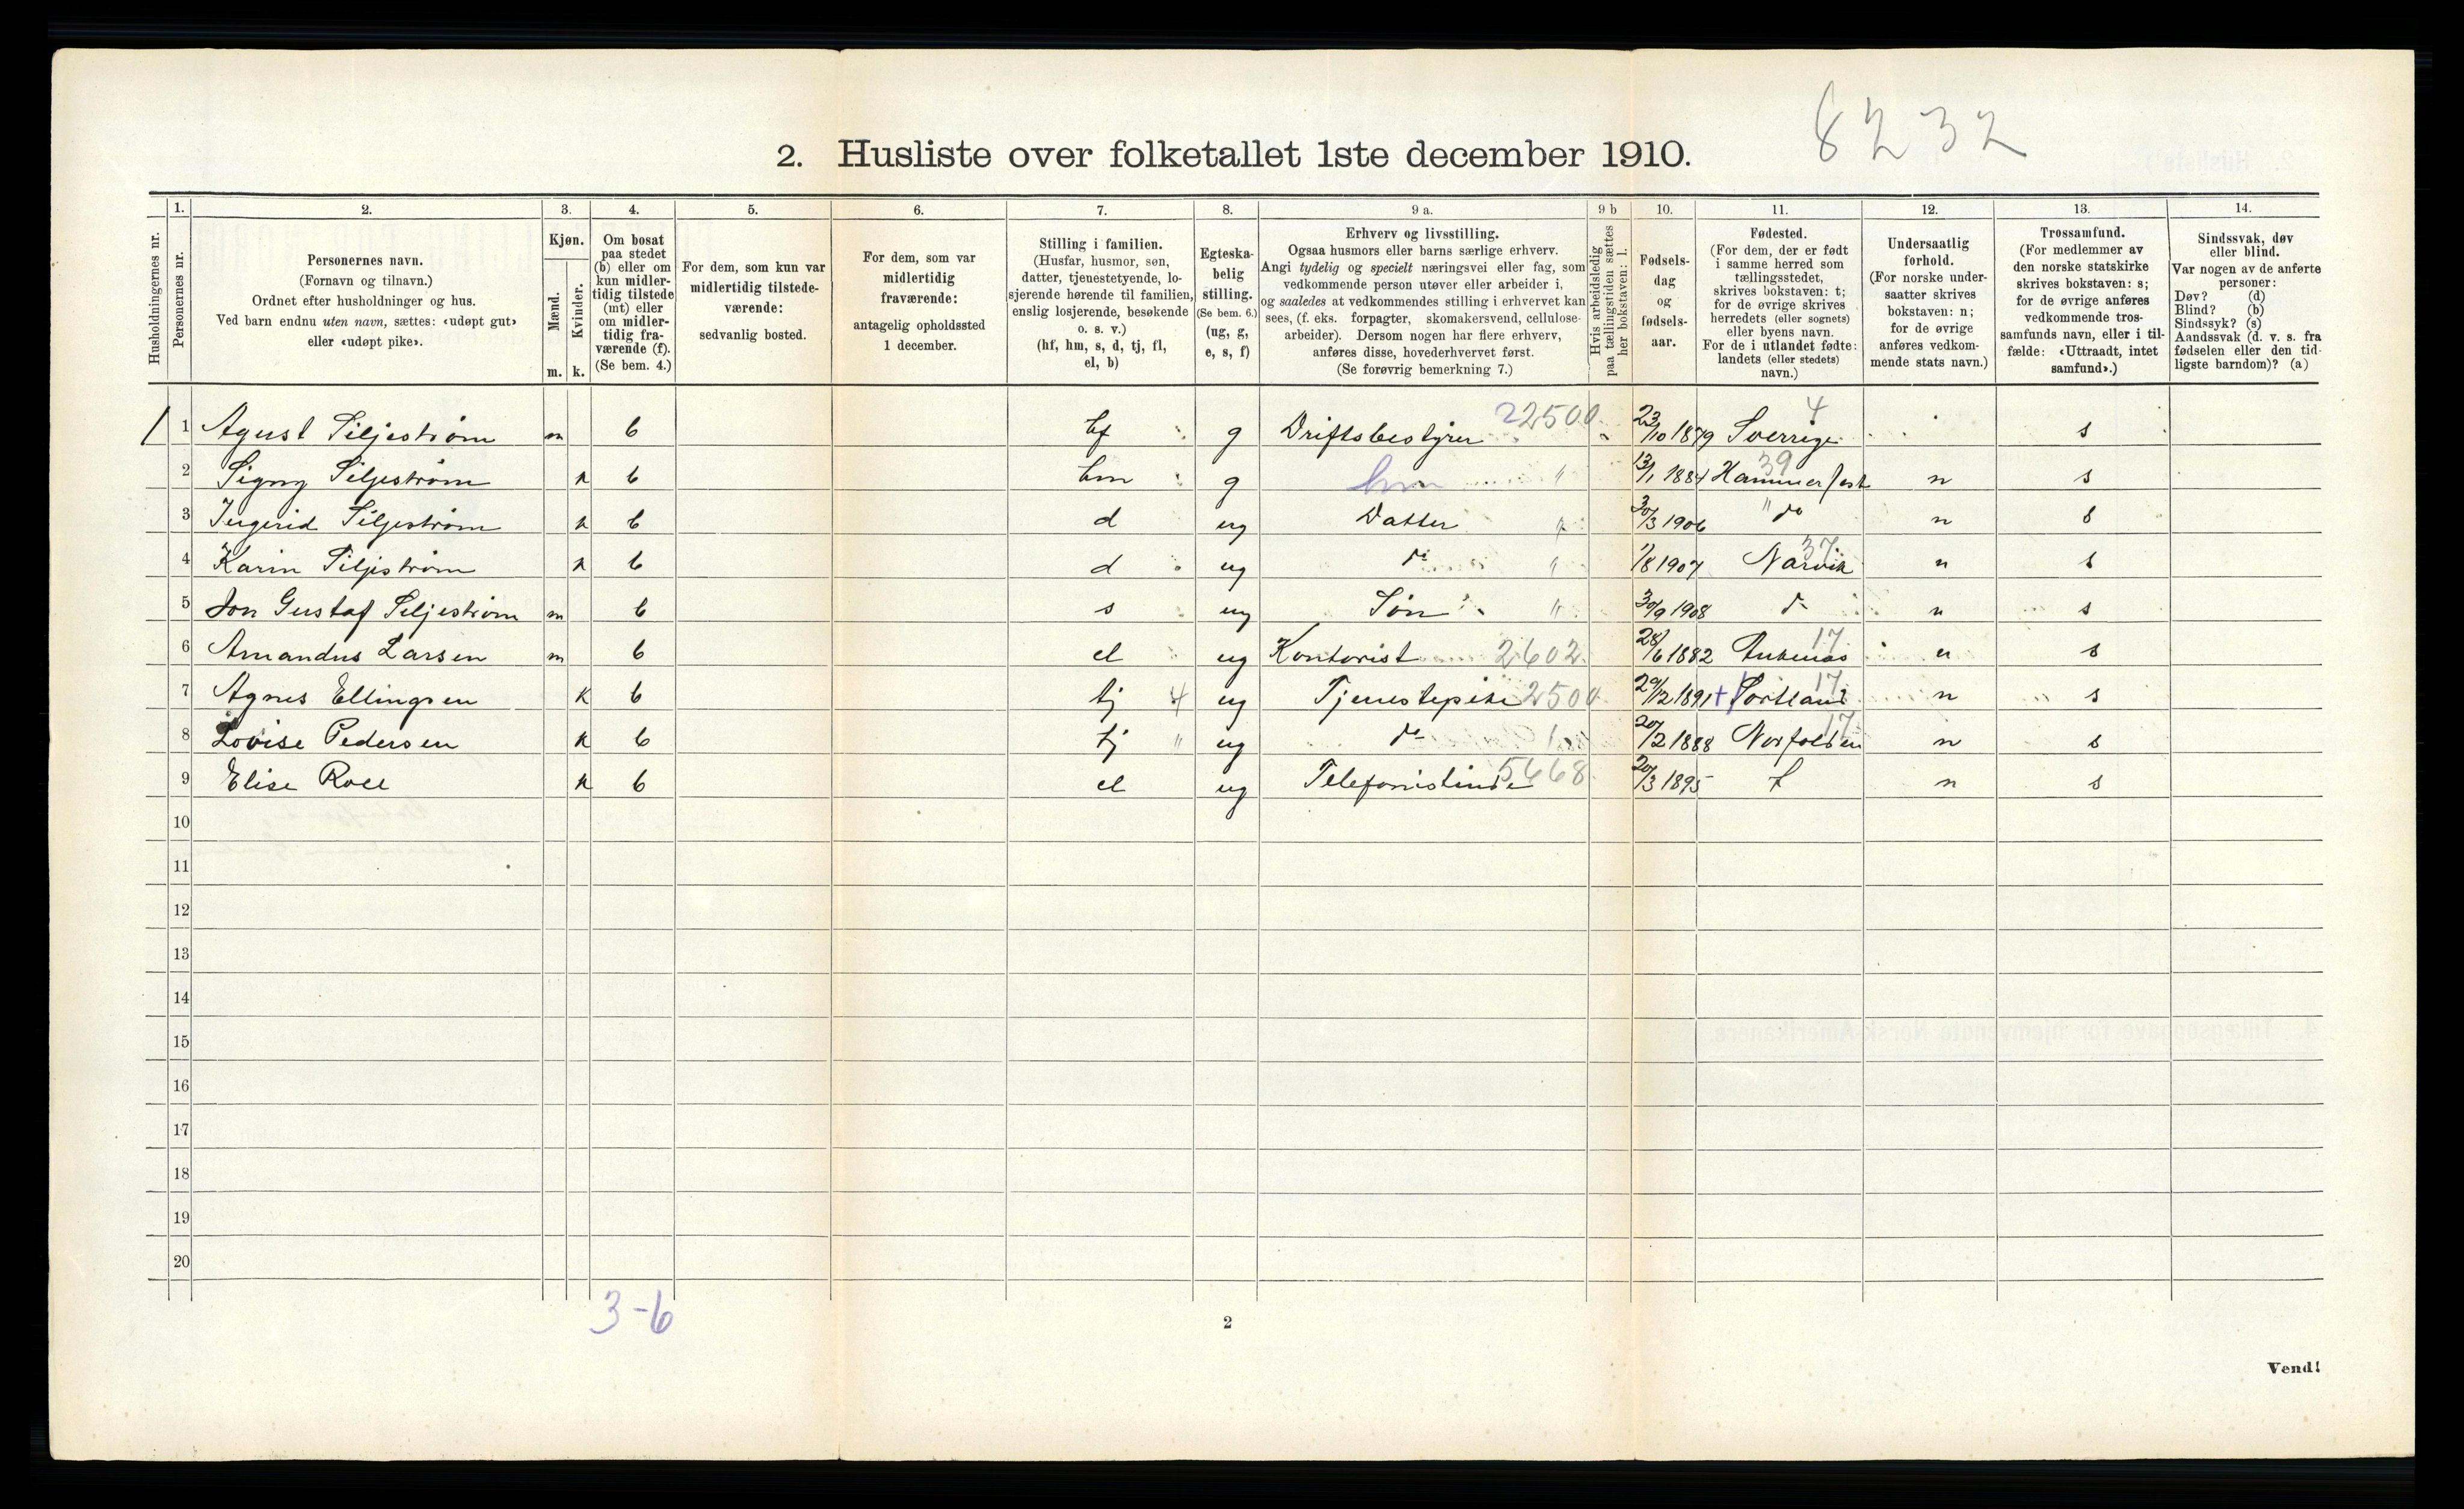 8232
2. Husliste over folketallet 1ste december 1910.
Husholdningernes nr.
1. Personernes nr.
2. Personernes navn.
(Fornavn og tilnavn.)
Ordnet efter husholdninger og hus.
Ved barn endnu uten navn, sættes: «udøpt gut»
eller «udøpt pike».
3. Kjøn.
Mænd. Kvinder.
m. k.
4. Om bosat
paa stedet
(b) eller om
kun midler-
tidig tilstede
(mt) eller
om midler-
tidig fra-
værende (f).
(Se bem. 4.)
5. For dem, som kun var
midlertidig tilstede-
værende:
sedvanlig bosted.
6. For dem, som var
midlertidig
fraværende:
antagelig opholdssted
1 december.
7. Stilling i familien.
(Husfar, husmor, søn,
datter, tjenestetyende, lo-
sjerende hørende til familien,
enslig losjerende, besøkende
o. s. v.)
(hf, hm, s, d, tj, fl,
el, b)
8. Egteska-
belig
stilling.
(Se bem. 6.)
(ug, g,
e, s, f)
9 a. Erhverv og livsstilling.
Ogsaa husmors eller barns særlige erhverv.
Angi tydelig og specielt næringsvei eller fag, som
vedkommende person utøver eller arbeider i,
og saaledes at vedkommendes stilling i erhvervet kan
sees, (f. eks. forpagter, skomakersvend, cellulose-
arbeider). Dersom nogen har flere erhverv,
anføres disse, hovederhvervet først.
(Se forøvrig bemerkning 7.)
9 b Hvis arbeidsledig
paa tællingstiden sættes
her bokstaven: l.
10. Fødsels-
dag
og
fødsels-
aar.
11. Fødested.
(For dem, der er født
i samme herred som
tællingsstedet,
skrives bokstaven: t;
for de øvrige skrives
herredets (eller sognets)
eller byens navn.
For de i utlandet fødte:
landets (eller stedets)
navn.)
12. Undersaatlig
forhold.
(For norske under-
saatter skrives
bokstaven: n;
for de øvrige
anføres vedkom-
mende stats navn.)
13. Trossamfund.
(For medlemmer av
den norske statskirke
skrives bokstaven: s;
for de øvrige anføres
vedkommende tros-
samfunds navn, eller i til-
fælde: «Uttraadt, intet
samfund».)
14. Sindssvak, døv
eller blind.
Var nogen av de anførte
personer:
Døv? (d)
Blind? (b)
Sindssyk? (s)
Aandssvak (d. v. s. fra
fødselen eller den tid-
ligste barndom)? (a)
1 1 Agust Siljestrøm m b hf g Driftsbestyrer 22500 23/10 1879 Sverrige 4 s
2 Signy Siljestrøm k b hm g hm " 13/1 1884 Hammerfest 39 n s
3 Ingerid Siljestrøm k b d ug Datter " 30/3 1906 " do n s
4 Karin Siljestrøm k b d ug do " 1/8 1907 Narvik 37 n s
5 Jon Gustaf Siljestrøm m b s ug Søn " 30/9 1908 do n s
6 Amandus Larsen m b el ug Kontorist 2602 28/6 1882 Ankenes 17 n s
7 Agnes Ellingsen k b tj 4 ug Tjenestepike 2500 29/12 1891 + Sortland 17 n s
8 Lovise Pedersen k b tj " ug do 20/2 1888 Norfolden 17 n s
9 Elise Roll k b el ug Telefonistinde 5668 20/3 1895 t n s
10
11
12
13
14
15
16
17
18
19
20
3-6
2
Vend!